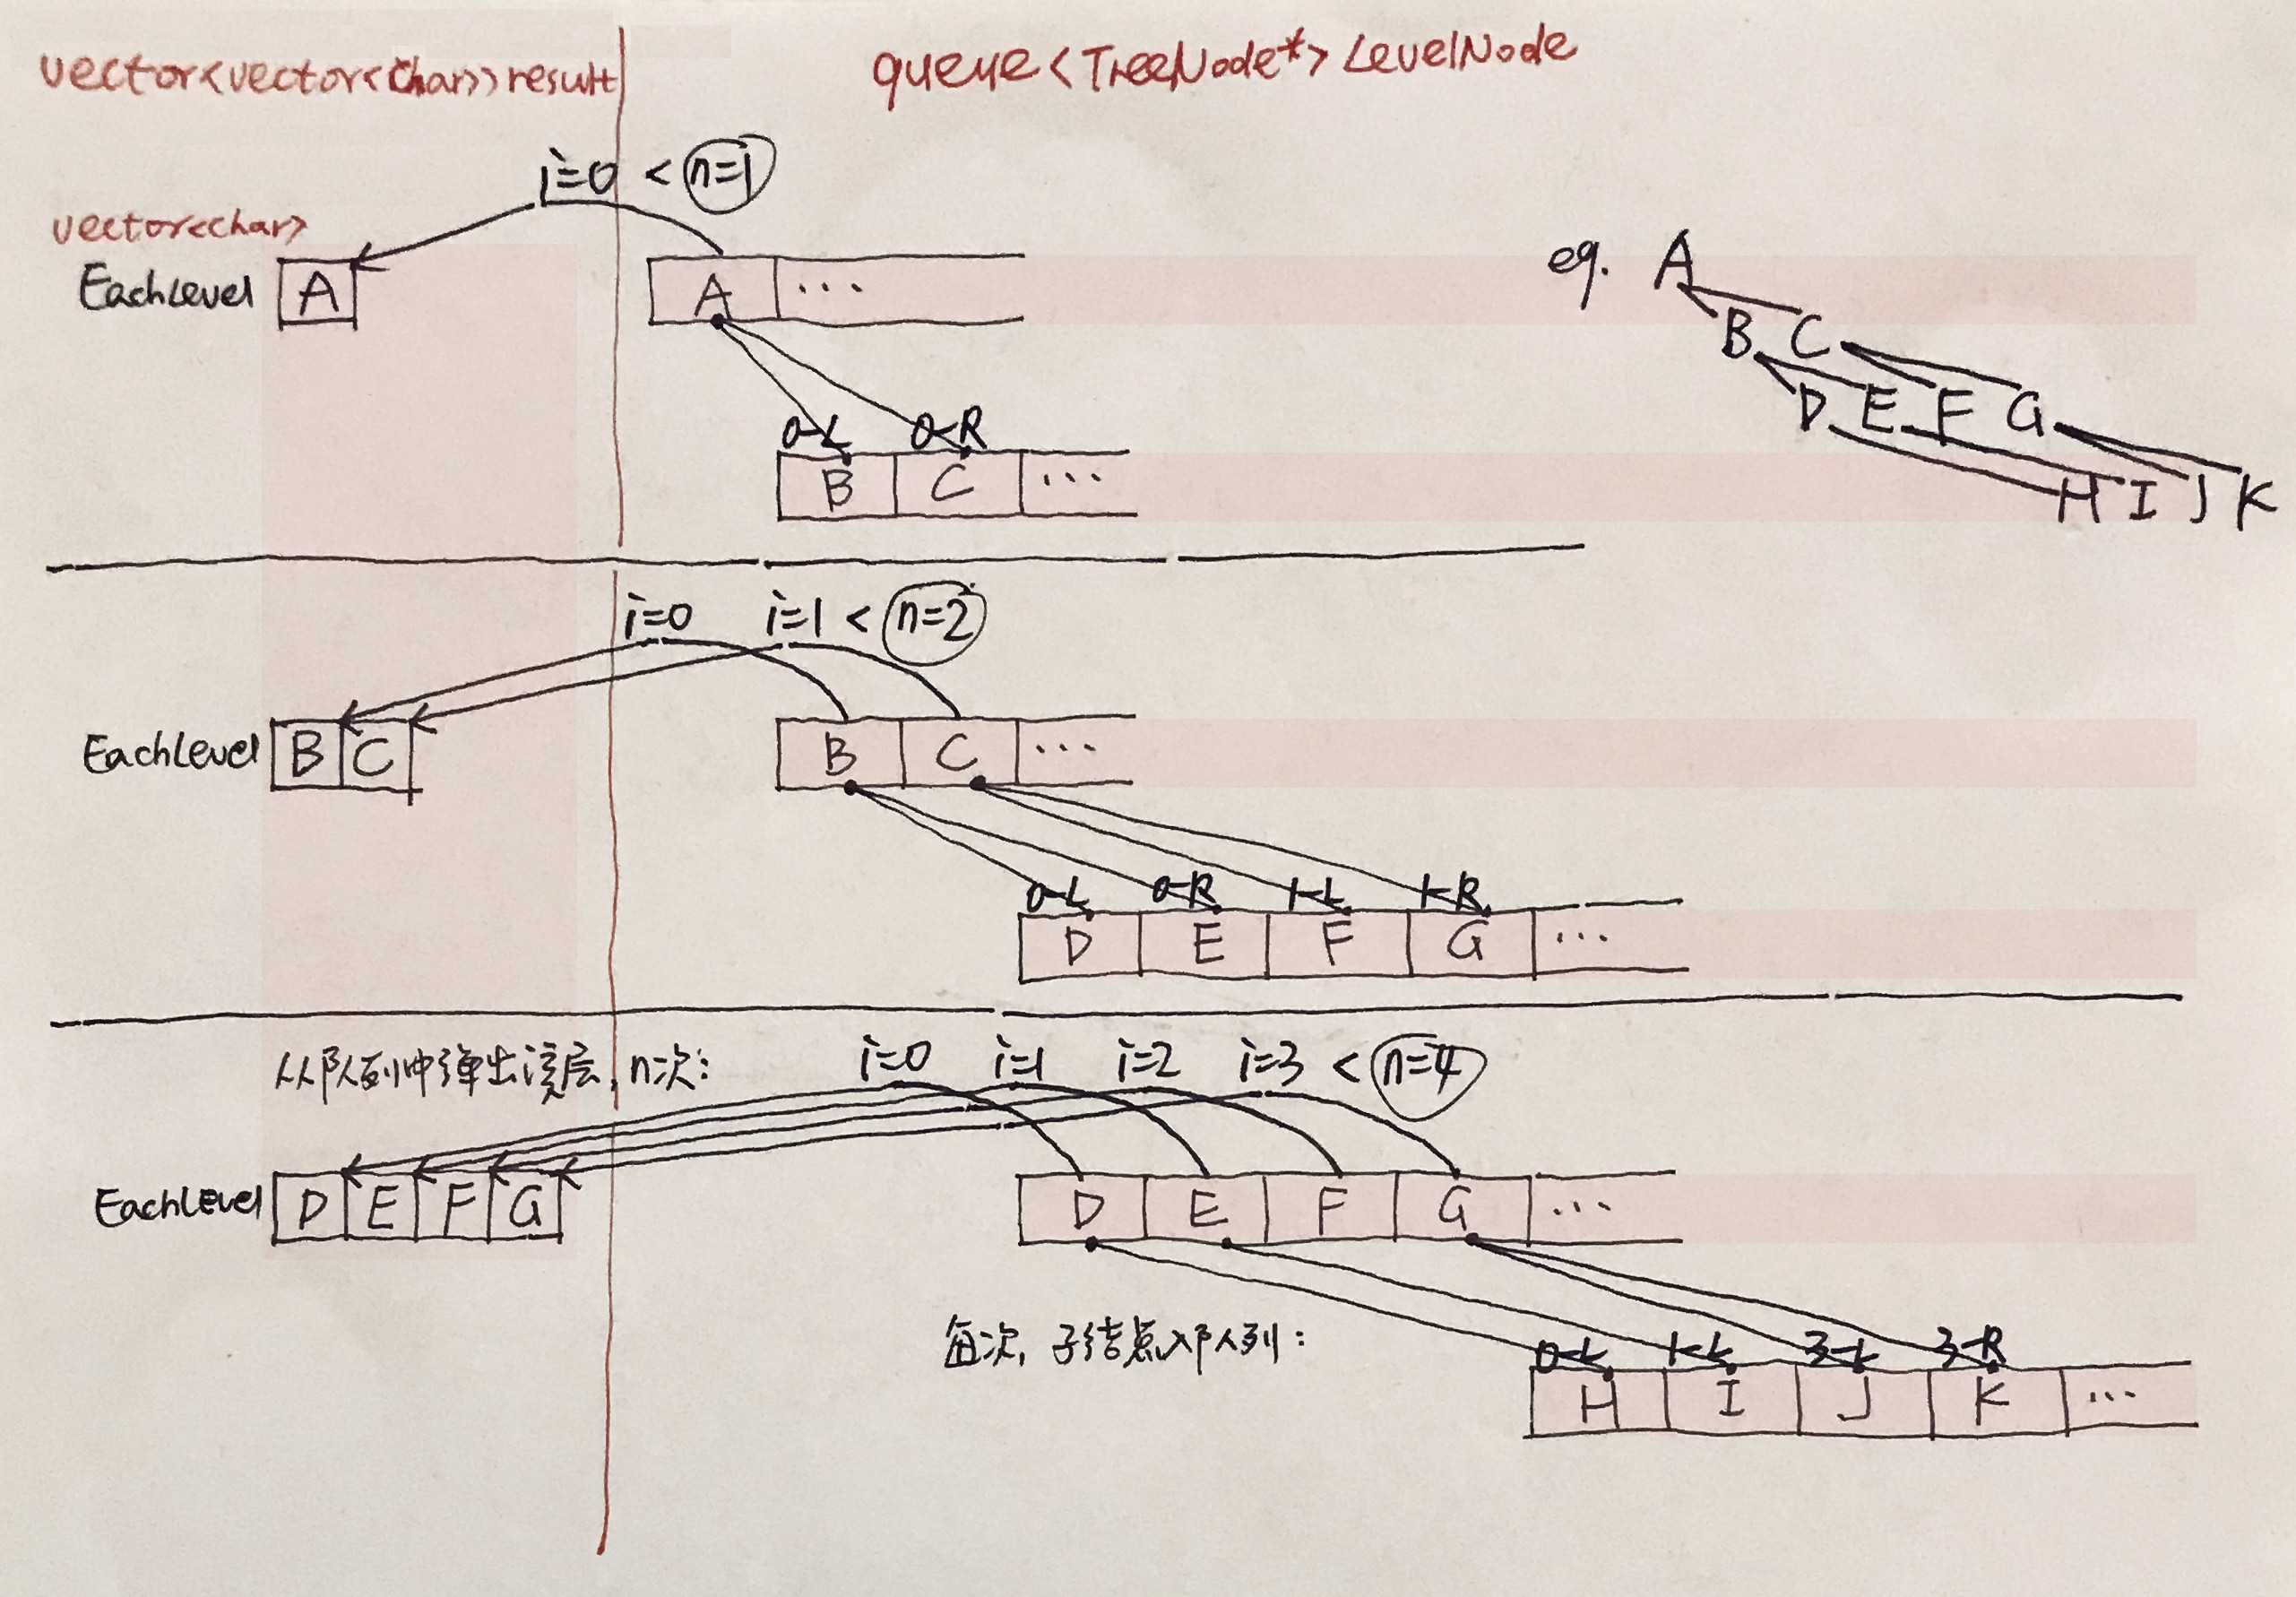 vector<vector<char>> result
queue<TreeNode*> LevelNode
i=0 < n=1
vector<char>
EachLevel A
A ...
0-L 0-R
B C ...
eg. A
B C
D E F G
H I J K
i=0 i=1 < n=2
EachLevel B C
B C ...
0-L 0-R 1-L 1-R
D E F G ...
从队列中弹出该层, n次:
i=0 i=1 i=2 i=3 < n=4
EachLevel D E F G
D E F G ...
每次, 子结点入队列:
0-L 1-L 3-L 3-R
H I J K ...